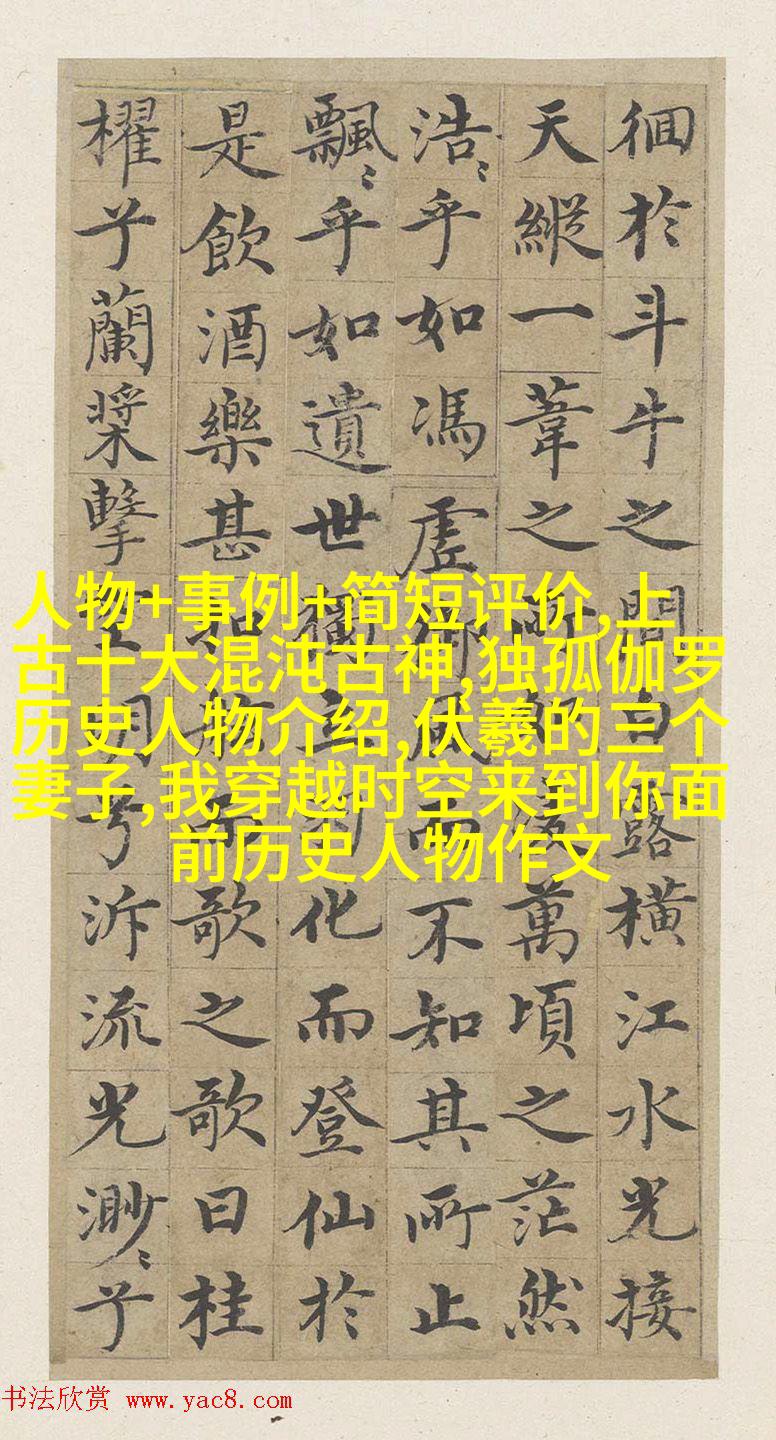 徊於斗牛之間白露橫江水光接
天縱一葦之所如凌萬頃之茫然
浩〻乎如馮虛御風而不知其所止
飄〻乎如遺世獨立羽化而登仙於
是飲酒樂甚扣舷而歌之歌曰桂
櫂兮蘭槳擊空明兮泝流光渺〻兮
人物+事例+简短评价,上
古十大混沌古神,独孤伽罗
历史人物介绍,伏羲的三个
妻子,我穿越时空来到你面
前历史人物作文
书法欣赏 www.yac8.com